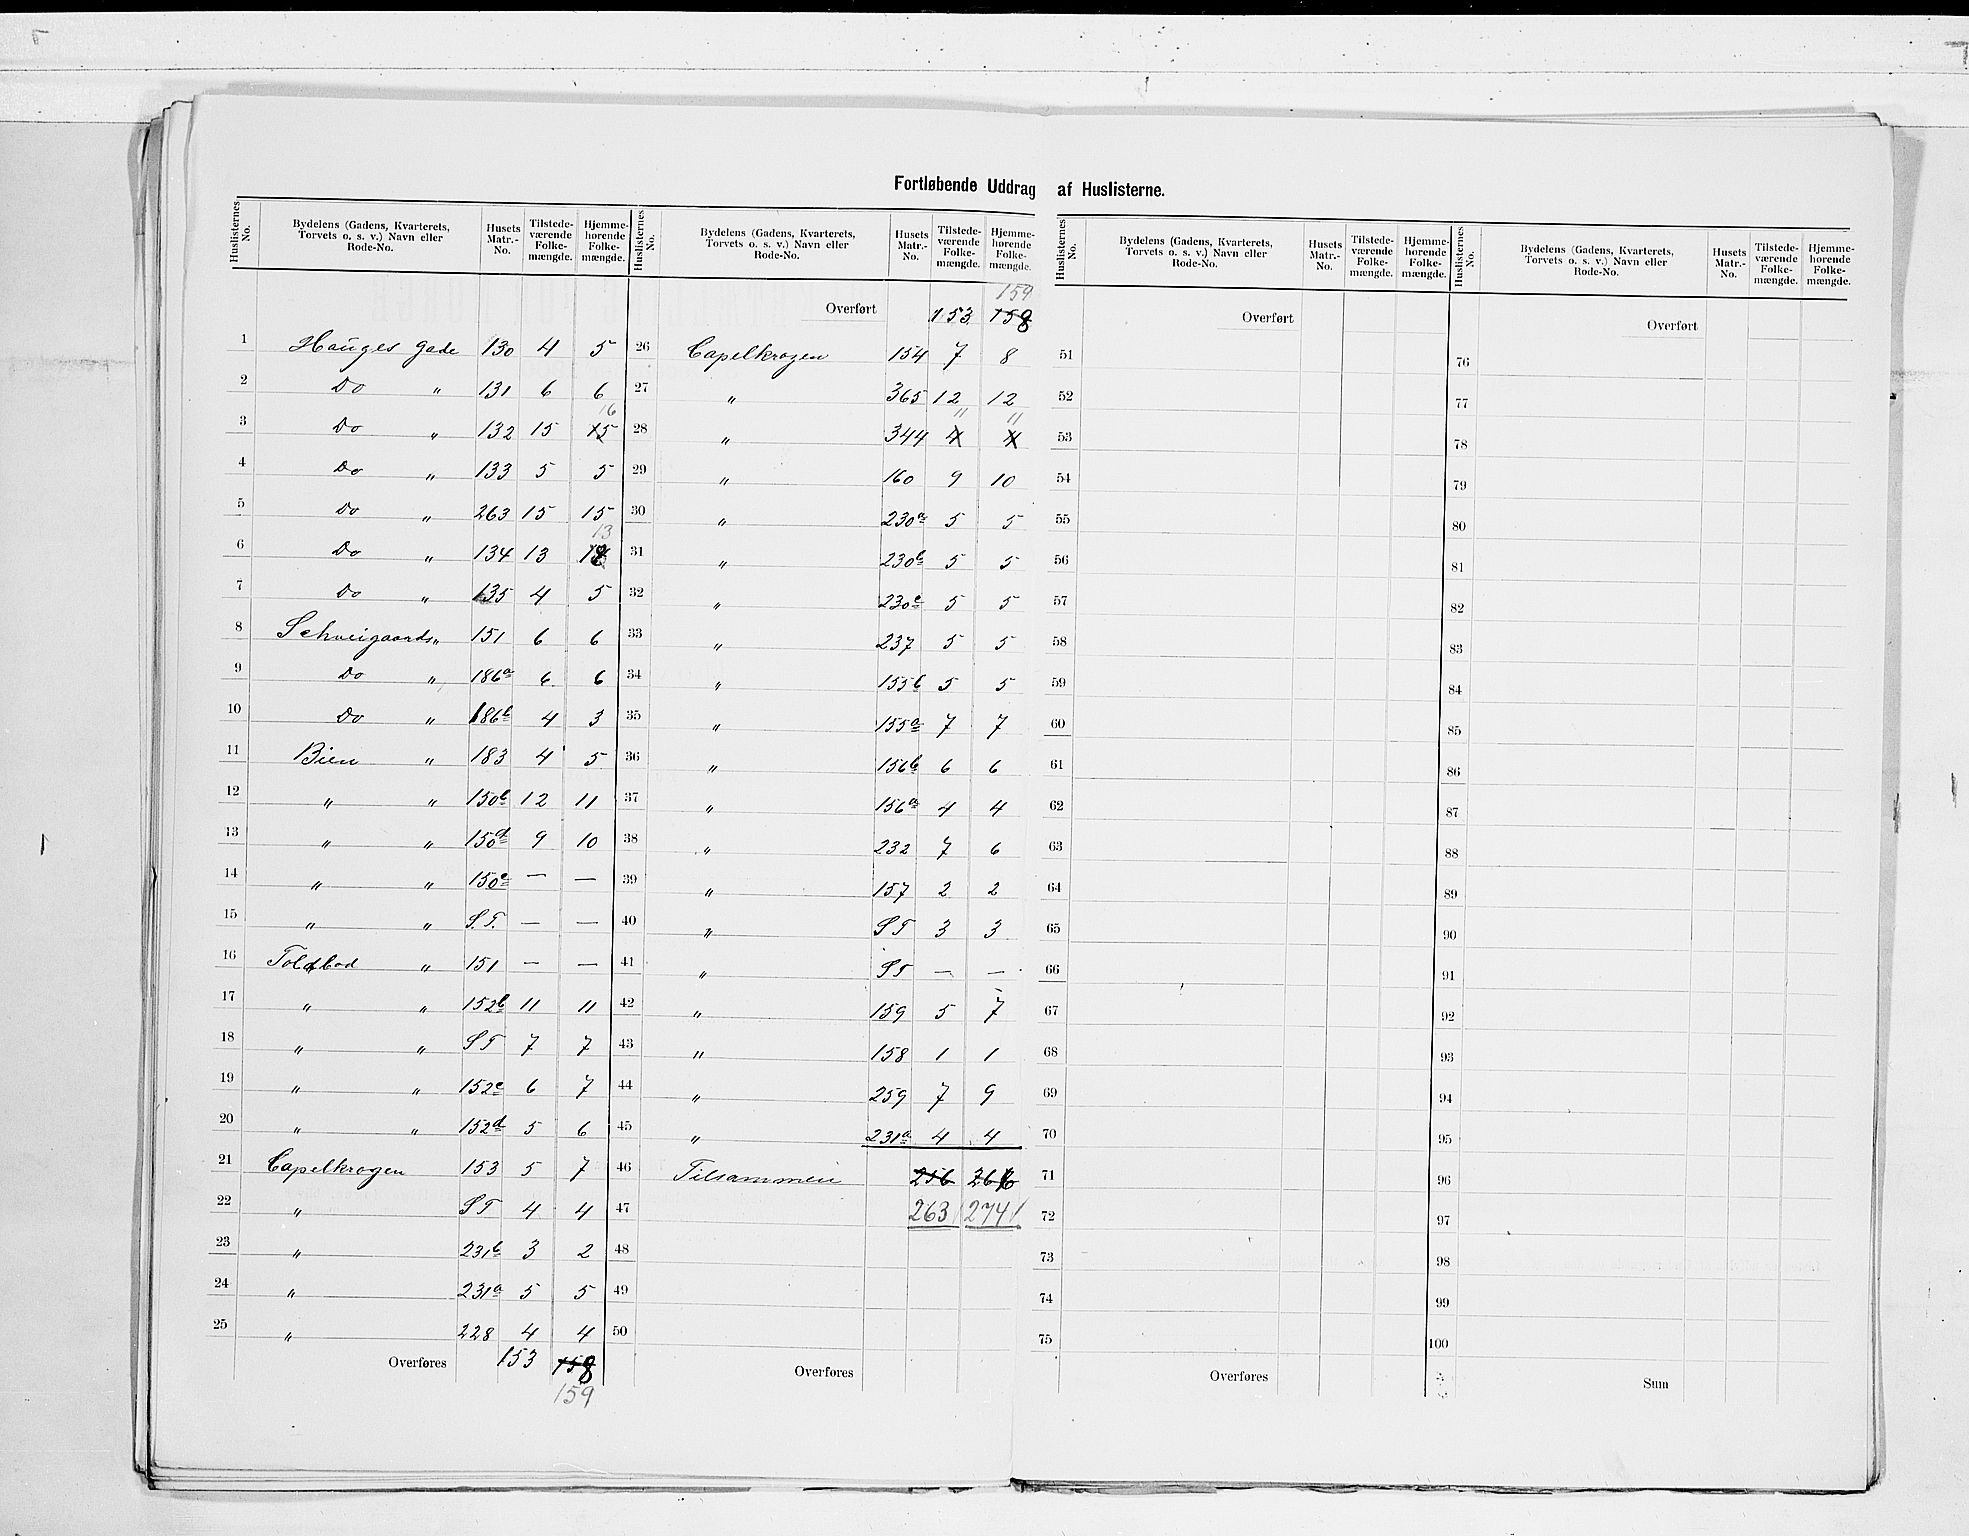 Fortløbende Uddrag af Huslisterne.
Huslisternes No. Bydelens (Gadens, Kvarterets, Torvets o. s. v.) Navn eller Rode-No. Husets Matr.-No. Tilstede-værende Folke-mængde. Hjemme-hørende Folke-mængde.
1 Hauges gade 130 4 5
2 Do " 131 6 6
3 Do " 132 15 15 16
4 Do " 133 5 5
5 Do " 263 15 15
6 Do " 134 13 13
7 Do " 135 4 5
8 Schweigaards " 151 6 6
9 Do " 186a 6 6
10 Do " 186b 4 3
11 Bien " 183 4 5
12 " " 150b 12 11
13 " " 150d 9 10
14 " " 150c — —
15 " " S.T. — —
16 Toldbod " 151 — —
17 " " 152b 11 11
18 " " ST 7 7
19 " " 152c 6 7
20 " " 152d 5 6
21 Capelkrogen 153 5 7
22 " ST 4 4
23 " 231b 3 2
24 " 231a 5 5
25 " 228 4 4
Overføres 153 158
159
Huslisternes No. Bydelens (Gadens, Kvarterets, Torvets o. s. v.) Navn eller Rode-No. Husets Matr.-No. Tilstede-værende Folke-mængde. Hjemme-hørende Folke-mængde.
159
Overført 153 158
26 Capelkrogen 154 7 8
27 " 365 12 12
11 11
28 " 344 4 4
29 " 160 9 10
30 " 230a 5 5
31 " 230b 5 5
32 " 230c 5 5
33 " 237 5 5
34 " 155b 5 5
35 " 155a 7 7
36 " 156b 6 6
37 " 156a 4 4
38 " 232 7 6
39 " 157 2 2
40 " ST 3 3
41 " ST — —
42 " 159 5 7
43 " 158 1 1
44 " 259 7 9
45 " 231a 4 4
46 Tilsammen 256 266
47 263 274
48
49
50
Overføres
Huslisternes No. Bydelens (Gadens, Kvarterets, Torvets o. s. v.) Navn eller Rode-No. Husets Matr.-No. Tilstede-værende Folke-mængde. Hjemme-hørende Folke-mængde.
Overført
51
52
53
54
55
56
57
58
59
60
61
62
63
64
65
66
67
68
69
70
71
72
73
74
75
Overføres
Huslisternes No. Bydelens (Gadens, Kvarterets, Torvets o. s. v.) Navn eller Rode-No. Husets Matr.-No. Tilstede-værende Folke-mængde. Hjemme-hørende Folke-mængde.
Overført
76
77
78
79
80
81
82
83
84
85
86
87
88
89
90
91
92
93
94
95
96
97
98
99
100
Sum